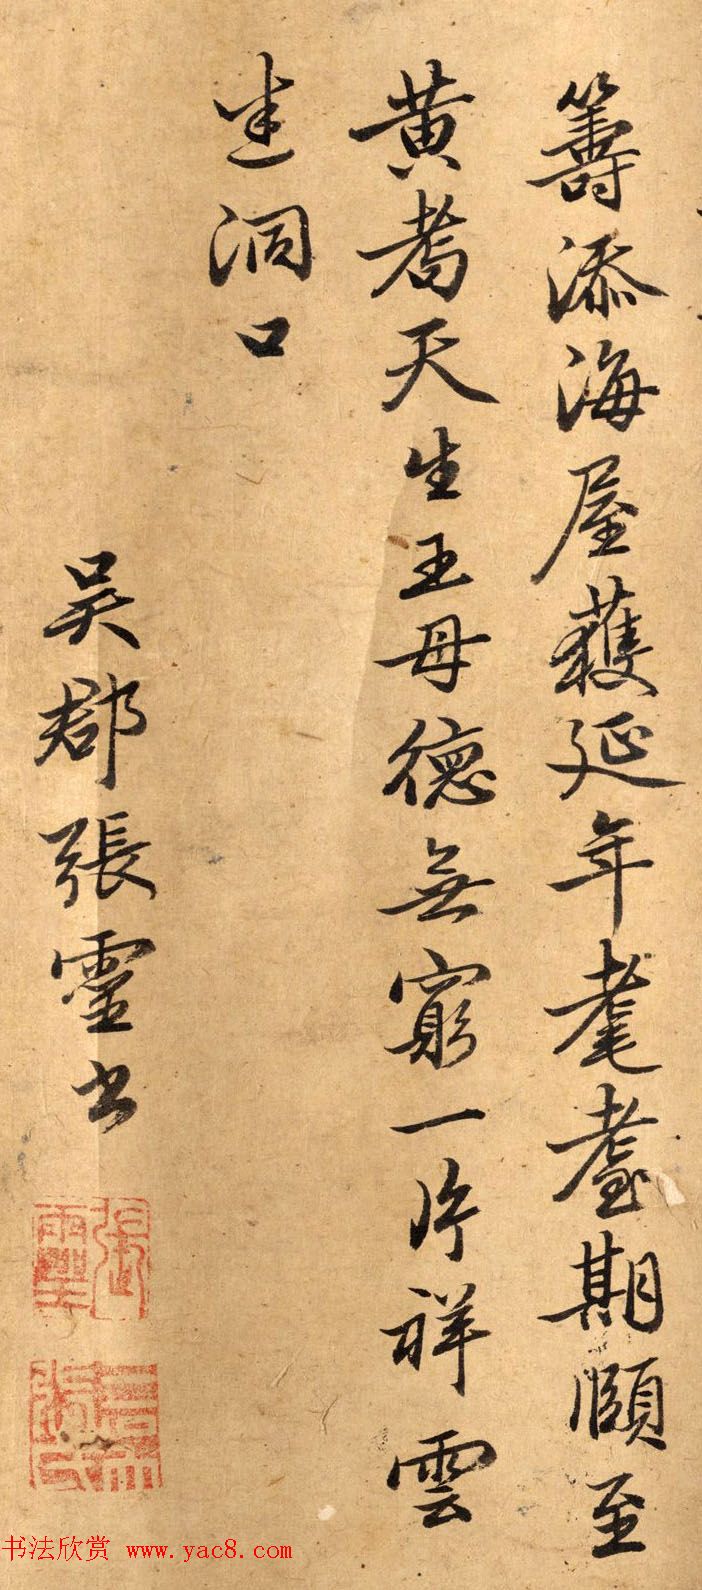 籌添海屋獲延年耄耋期頤至
黃耇天生王母德無窮一片祥雲
迷洞口
吳郡張靈書
張靈
书法欣赏 www.yac8.com